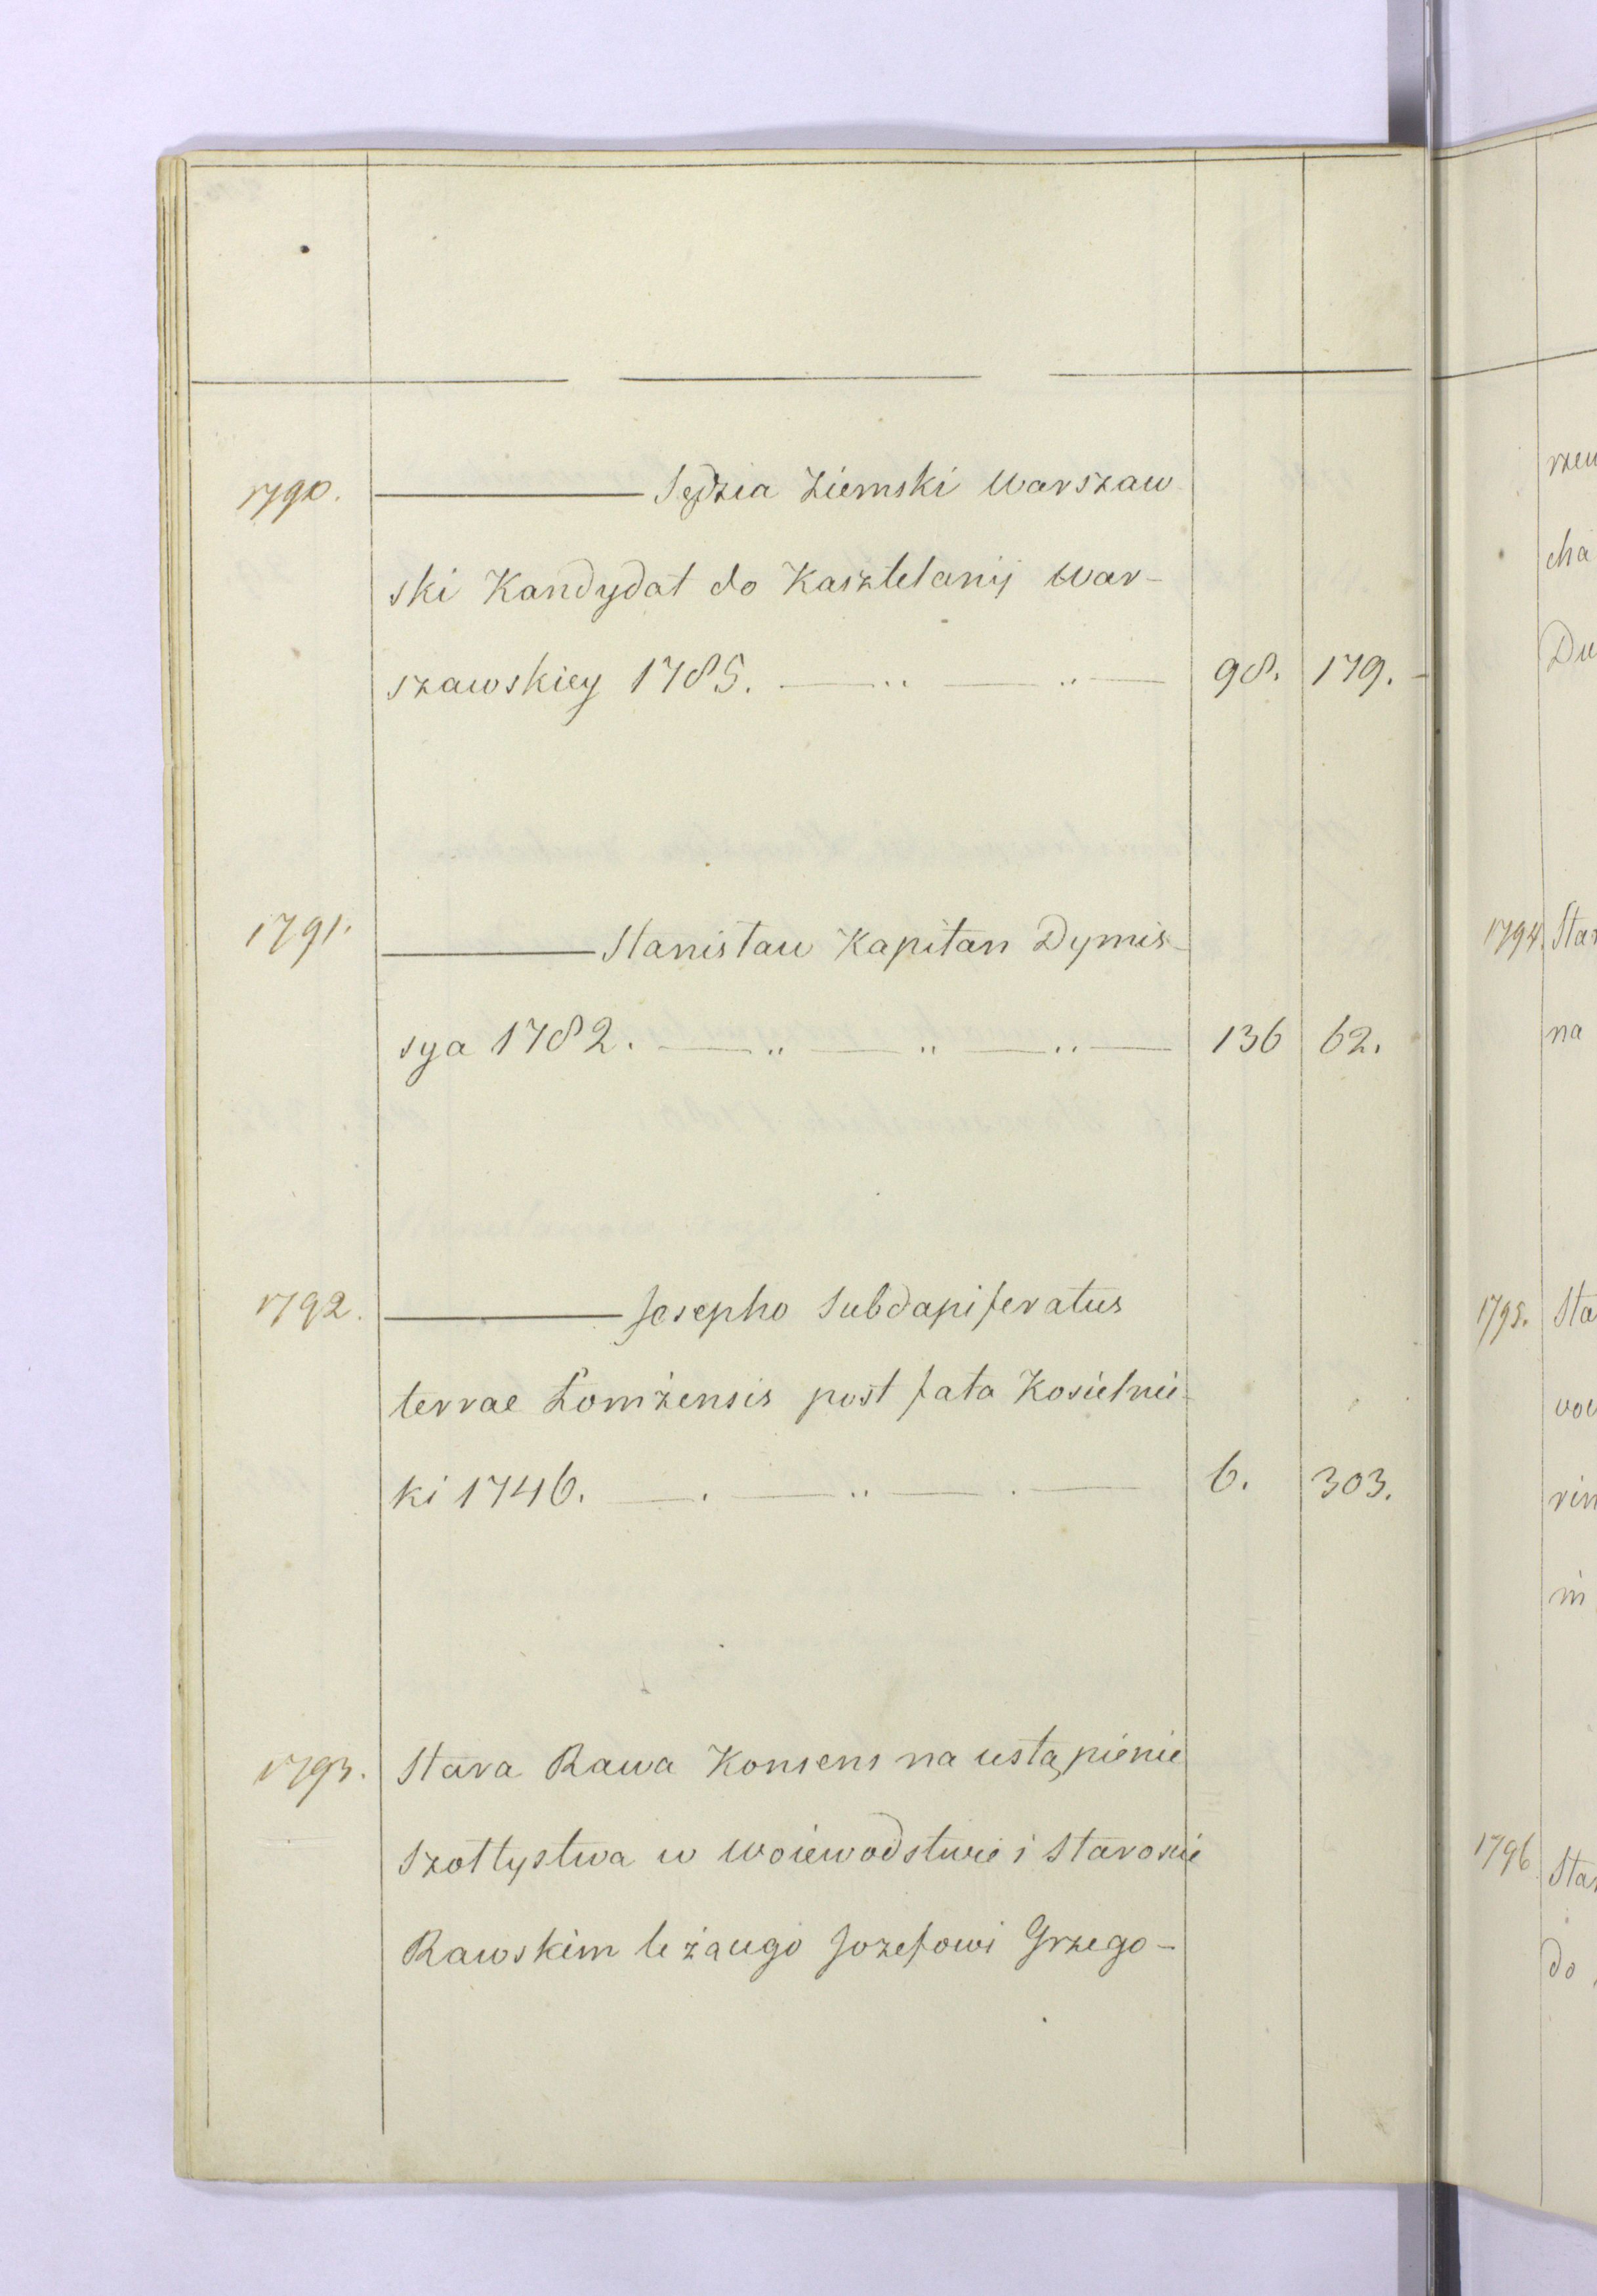 1790. ——— Sędzia Ziemski Warszaw
ski Kandydat do Kasztelanij War-
szawskiey 1785. — .. — .. — 98. 179.
1791. ——— Stanisław Kapitan Dymis-
sya 1782. — .. — .. — .. — 136 62.
1792. ——— Josepho Subdapiferatus
terrae Łomżensis post fata Kosielnic-
ki 1746. — . — .. — . — 6. 303.
1793. Stara Rawa Konsens na ustąpienie
Szołtystwa w Woiewodstwie i Starosie
Rawskim leżącego Jozefowi Grzego-
cha
1794. Star
na
1795. Sta
rin
in
1796 Star
do